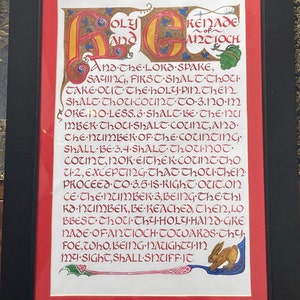 Holy Grenade
Hand of Antioch
And·the·Lord·spake,
saying, first·shalt·thou
take·out·the·holy·pin.then
shalt·thou·count·to·3.no·m
ore, no·less.3·shall·be·the·nu
mber·thou·shalt·count, and
the·number·of·the·counting
shall·be·3.4·shalt·thou·not
count, nor·either·count·tho
u·2, excepting·that·thou·then
proceed·to·3.5·is·right·out.on
ce·the·number·3, being·the·thi
rd·number, be·reached, then, lo
bbest·thou·thy·holy·hand·gre
nade·of·antioch·towards·thy
foe, who, being·naughty·in
my·sight, shall·snuff·it